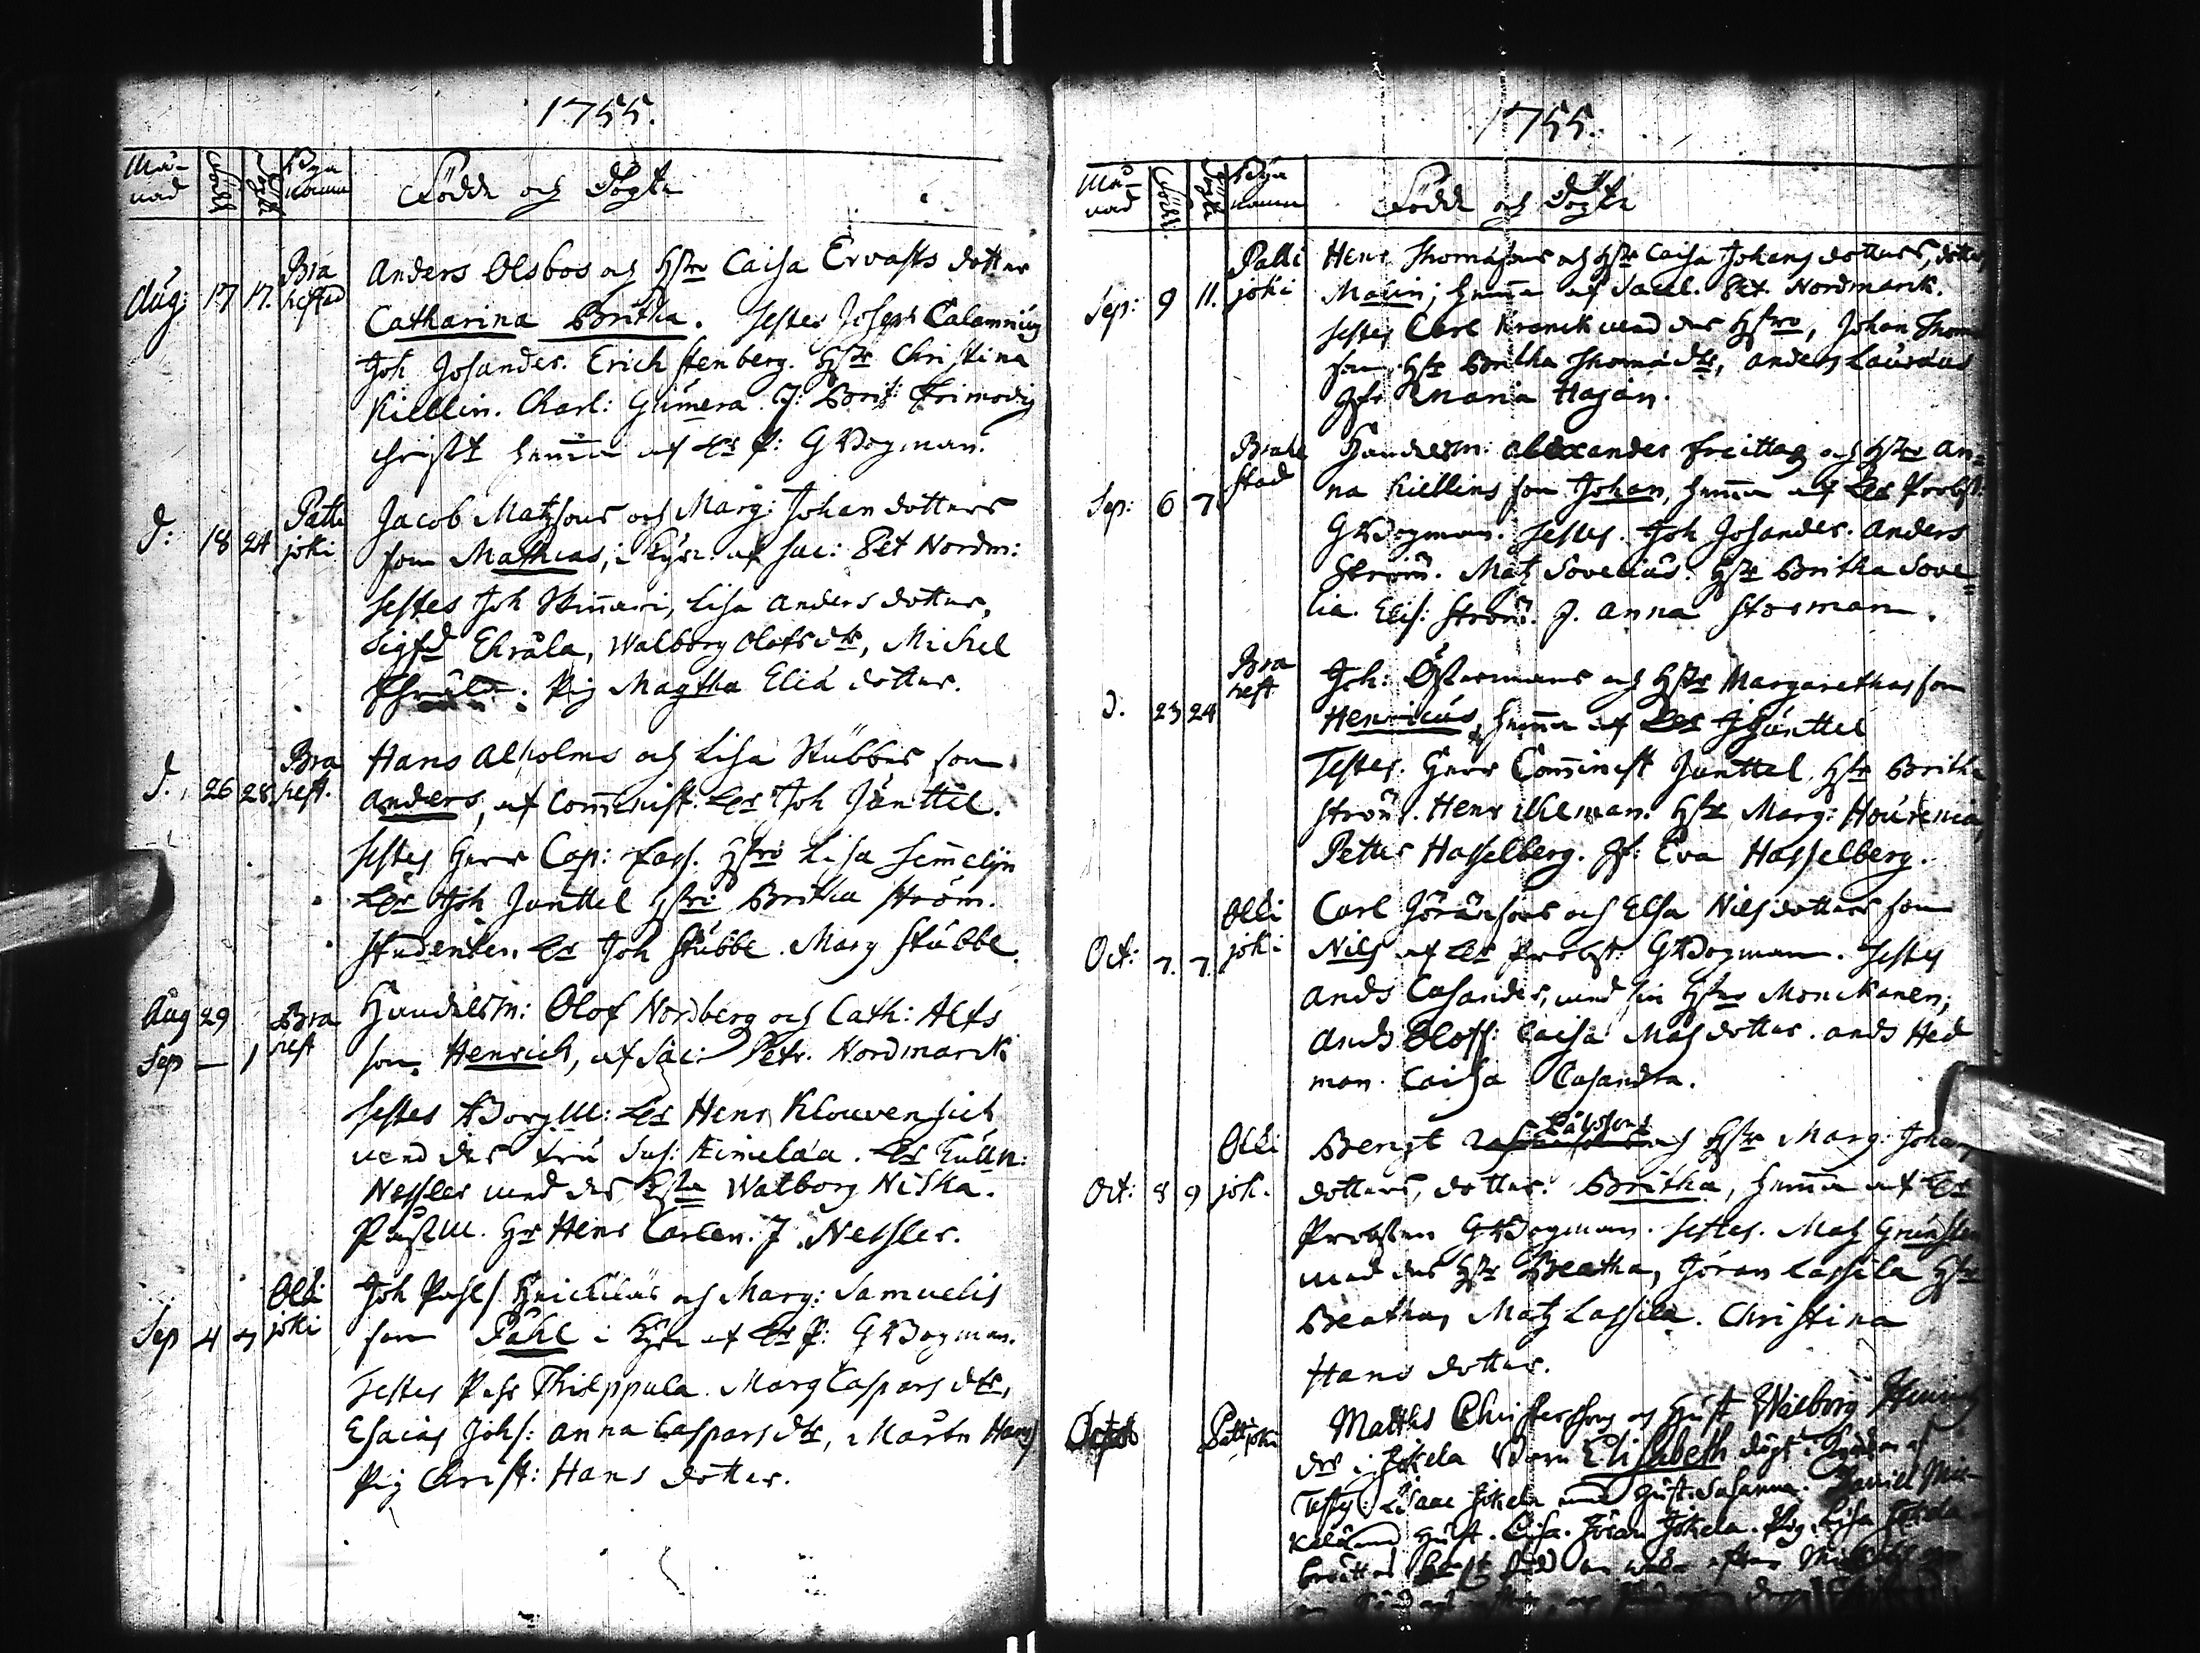 1755.
Må-
nad
Född
Dögte
Bya
namn
Född och Dögte
Aug: 17 17. Bra
hestad
Anders Olsbos och Hstr Caisa Ervasts dotter
Catharina Britha. Testes Joseph Calamnius
Joh Josander. Erich Stenberg. Hstr Christina
Kiellin. Charl: Gumera. J: Brit: Frimodig
christ hemma af Hr P: G Wegman.
d: 18 24 Patti
joki
Jacob Matzsons och Marg: Johans dotters
son Mathias, i Kyrk: af Sac: Pet Nordm:
Testes Joh Skinnari, Lisa Anders dotter,
Sigfd Ehråla, Walborg Olofs dtr, Michel
Pig Magtha Elia dotter.
d. 26 28 Bra
hest.
Hans Alholms och Lisa Stubbes son
Anders, af Comminist: Hr Joh Junttil.
Testes Herr Cap: Hstro Lisa
Hr Joh Junttel Hstro Britha Ström.
Studenten. Hr Joh Stubbe. Marg Stubbe.
Aug 29
Sep — 1 Bra
hest
Handelsm: Olof Nordberg och Cath: Alfs
son Henrich, af Sac: Petr. Nordmarck
Testes Borg M: Hr Henr Klouvensich
med des fru Sus: Kimelæa. Hr Tulln:
Nessler med des Hstru Walborg Niska.
Post M. Hr Henr Carlen. J. Nessler.
Sep 4 7 Olki
joki
Joh Pahls och Marg: Samuelis
son Påhl i Kyrk af Hr P: G Wegman.
Testes Pehr Philppula. Marg Caspars dtr,
Esaias Johs: Anna Caspars dtr, Mårtn Hans
Pig Christ: Hans dotter.
1755.
Må-
nad
Född
Dögte
Bya
namn
Född och Dögte
Sep: 9 11. Patti
joki
Henr Thomasons och Hstr Caisa Johans dotters, dotter
Malin; hemma af Sacel. Pet Nordmarck.
Testes Carl Kranck med des Hstro, Johan Thom
son Hstr Britha Thoma dtr, Anders Lauræus
Jfr Maria Hajan.
Sep: 6 7 Brahe
stad
Handelsm: Alexander Freittag och Hstro An-
na Kiellins son Johan, hemma af Hr Probst:
G Wegman. Testes. Joh Josander. Anders
Ström. Matz Sovelius. Hstr Britha Sove-
lia. Elis: Ström. J. Anna Storman.
d. 23 24 Bra
hest
Joh: Östermans och Hstr Margarethas son
Henricus, hemma af Hr J Junttel
Testes. Herr Comminist Junttel Hstr Britha
Ström. Henr Hstr Marg:
Petter Hasselberg. Jf: Eva Hasselberg.
Oct: 7. 7. Olki
joki
Carl Jöransons och Elsa Nils dotters son
Nils af Hr Probst: G Wegman. Testes
Ands Casander, med sin Hstro Monckanen;
Ands Olofs: Caisa Mats dotter. Ands Hed
man. Caisa Casandra.
Oct: 8 9 Olki
jok.
Bengt Påhlsons och Hstr Marg: Johan
dotters, dotter. Britha, hemma af Hr
Probsten G Wegman. Testes. Matz Grunsten
med des Hstr Beatha, Jöran Lassila Hstr
Beatha, Matz Lassila. Christina
Hans dotter.
Octob Pattijoki
Matths Christersons och Hust Walborg
i Jokela Barn Elisabeth döpt i
Testes: Isaac Jokela med Hust: Susanna. Daniel Mic-
kelä med Hust. Lisa. Jöran Jokela. Pig. Lisa Jokela